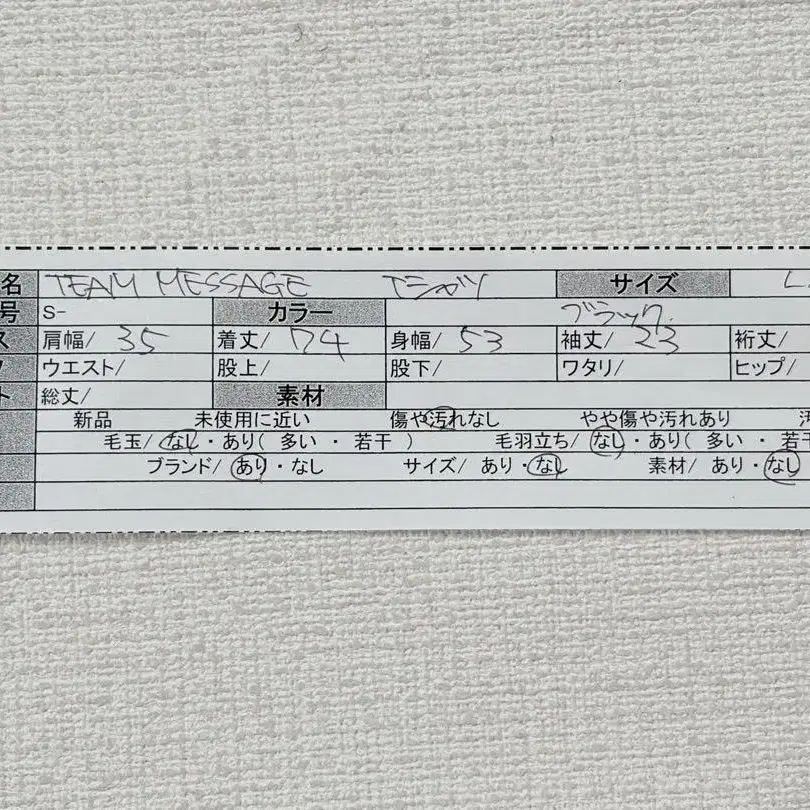 名 TEAM MESSAGE Tシャツ サイズ L
号 S- カラー ブラック.
ス 肩幅/ 35 着丈/ 74 身幅/ 53 袖丈/ 23 裄丈/
ウエスト/ 股上/ 股下/ ワタリ/ ヒップ/
ト 総丈/ 素材
新品 未使用に近い 傷や汚れなし やや傷や汚れあり
毛玉/ なし・あり( 多い ・ 若干 ) 毛羽立ち/ なし・あり( 多い ・ 若干
ブランド/ あり・なし サイズ/ あり・なし 素材/ あり・なし